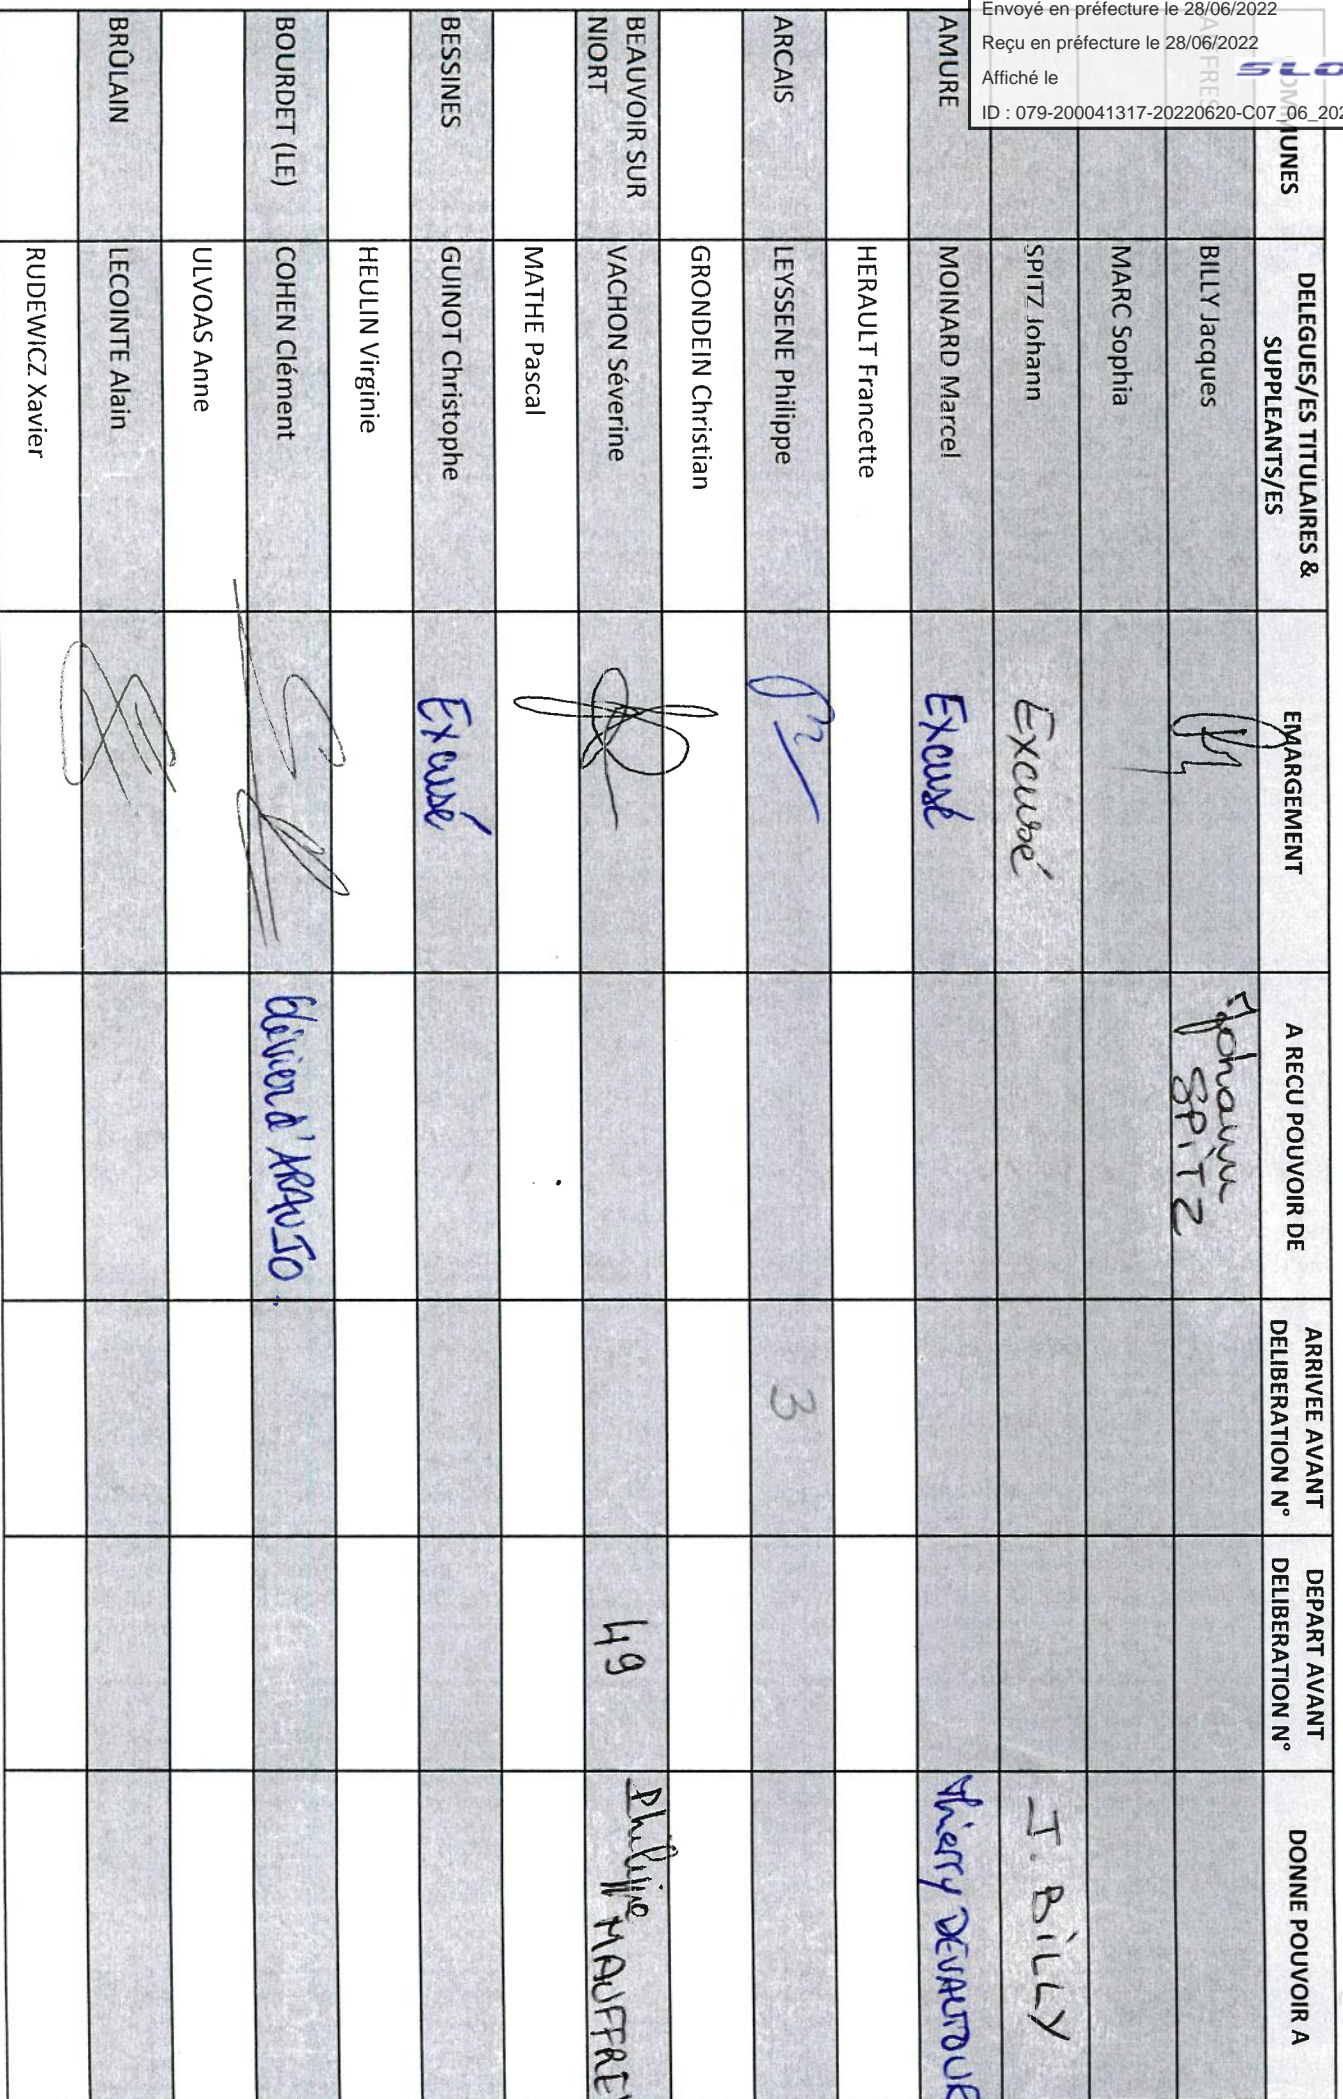 Envoyé en préfecture le 28/06/2022
Reçu en préfecture le 28/06/2022
Affiché le
ID : 079-200041317-20220620-C07_06_202
COMMUNES DELEGUES/ES TITULAIRES & SUPPLEANTS/ES EMARGEMENT A RECU POUVOIR DE ARRIVEE AVANT DELIBERATION N° DEPART AVANT DELIBERATION N° DONNE POUVOIR A
BILLY Jacques Johann SPITZ
MARC Sophia
SPITZ Johann Excusé J. BILLY
AMURE MOINARD Marcel Excusé Thierry DEVAUTOUR
HERAULT Francette
ARCAIS LEYSSENE Philippe 3
GRONDEIN Christian
BEAUVOIR SUR NIORT VACHON Séverine 49 Philippe MAUFFREY
MATHE Pascal
BESSINES GUINOT Christophe Excusé
HEULIN Virginie
BOURDET (LE) COHEN Clément d'ARAUJO.
ULVOAS Anne
BRÛLAIN LECOINTE Alain
RUDEWICZ Xavier